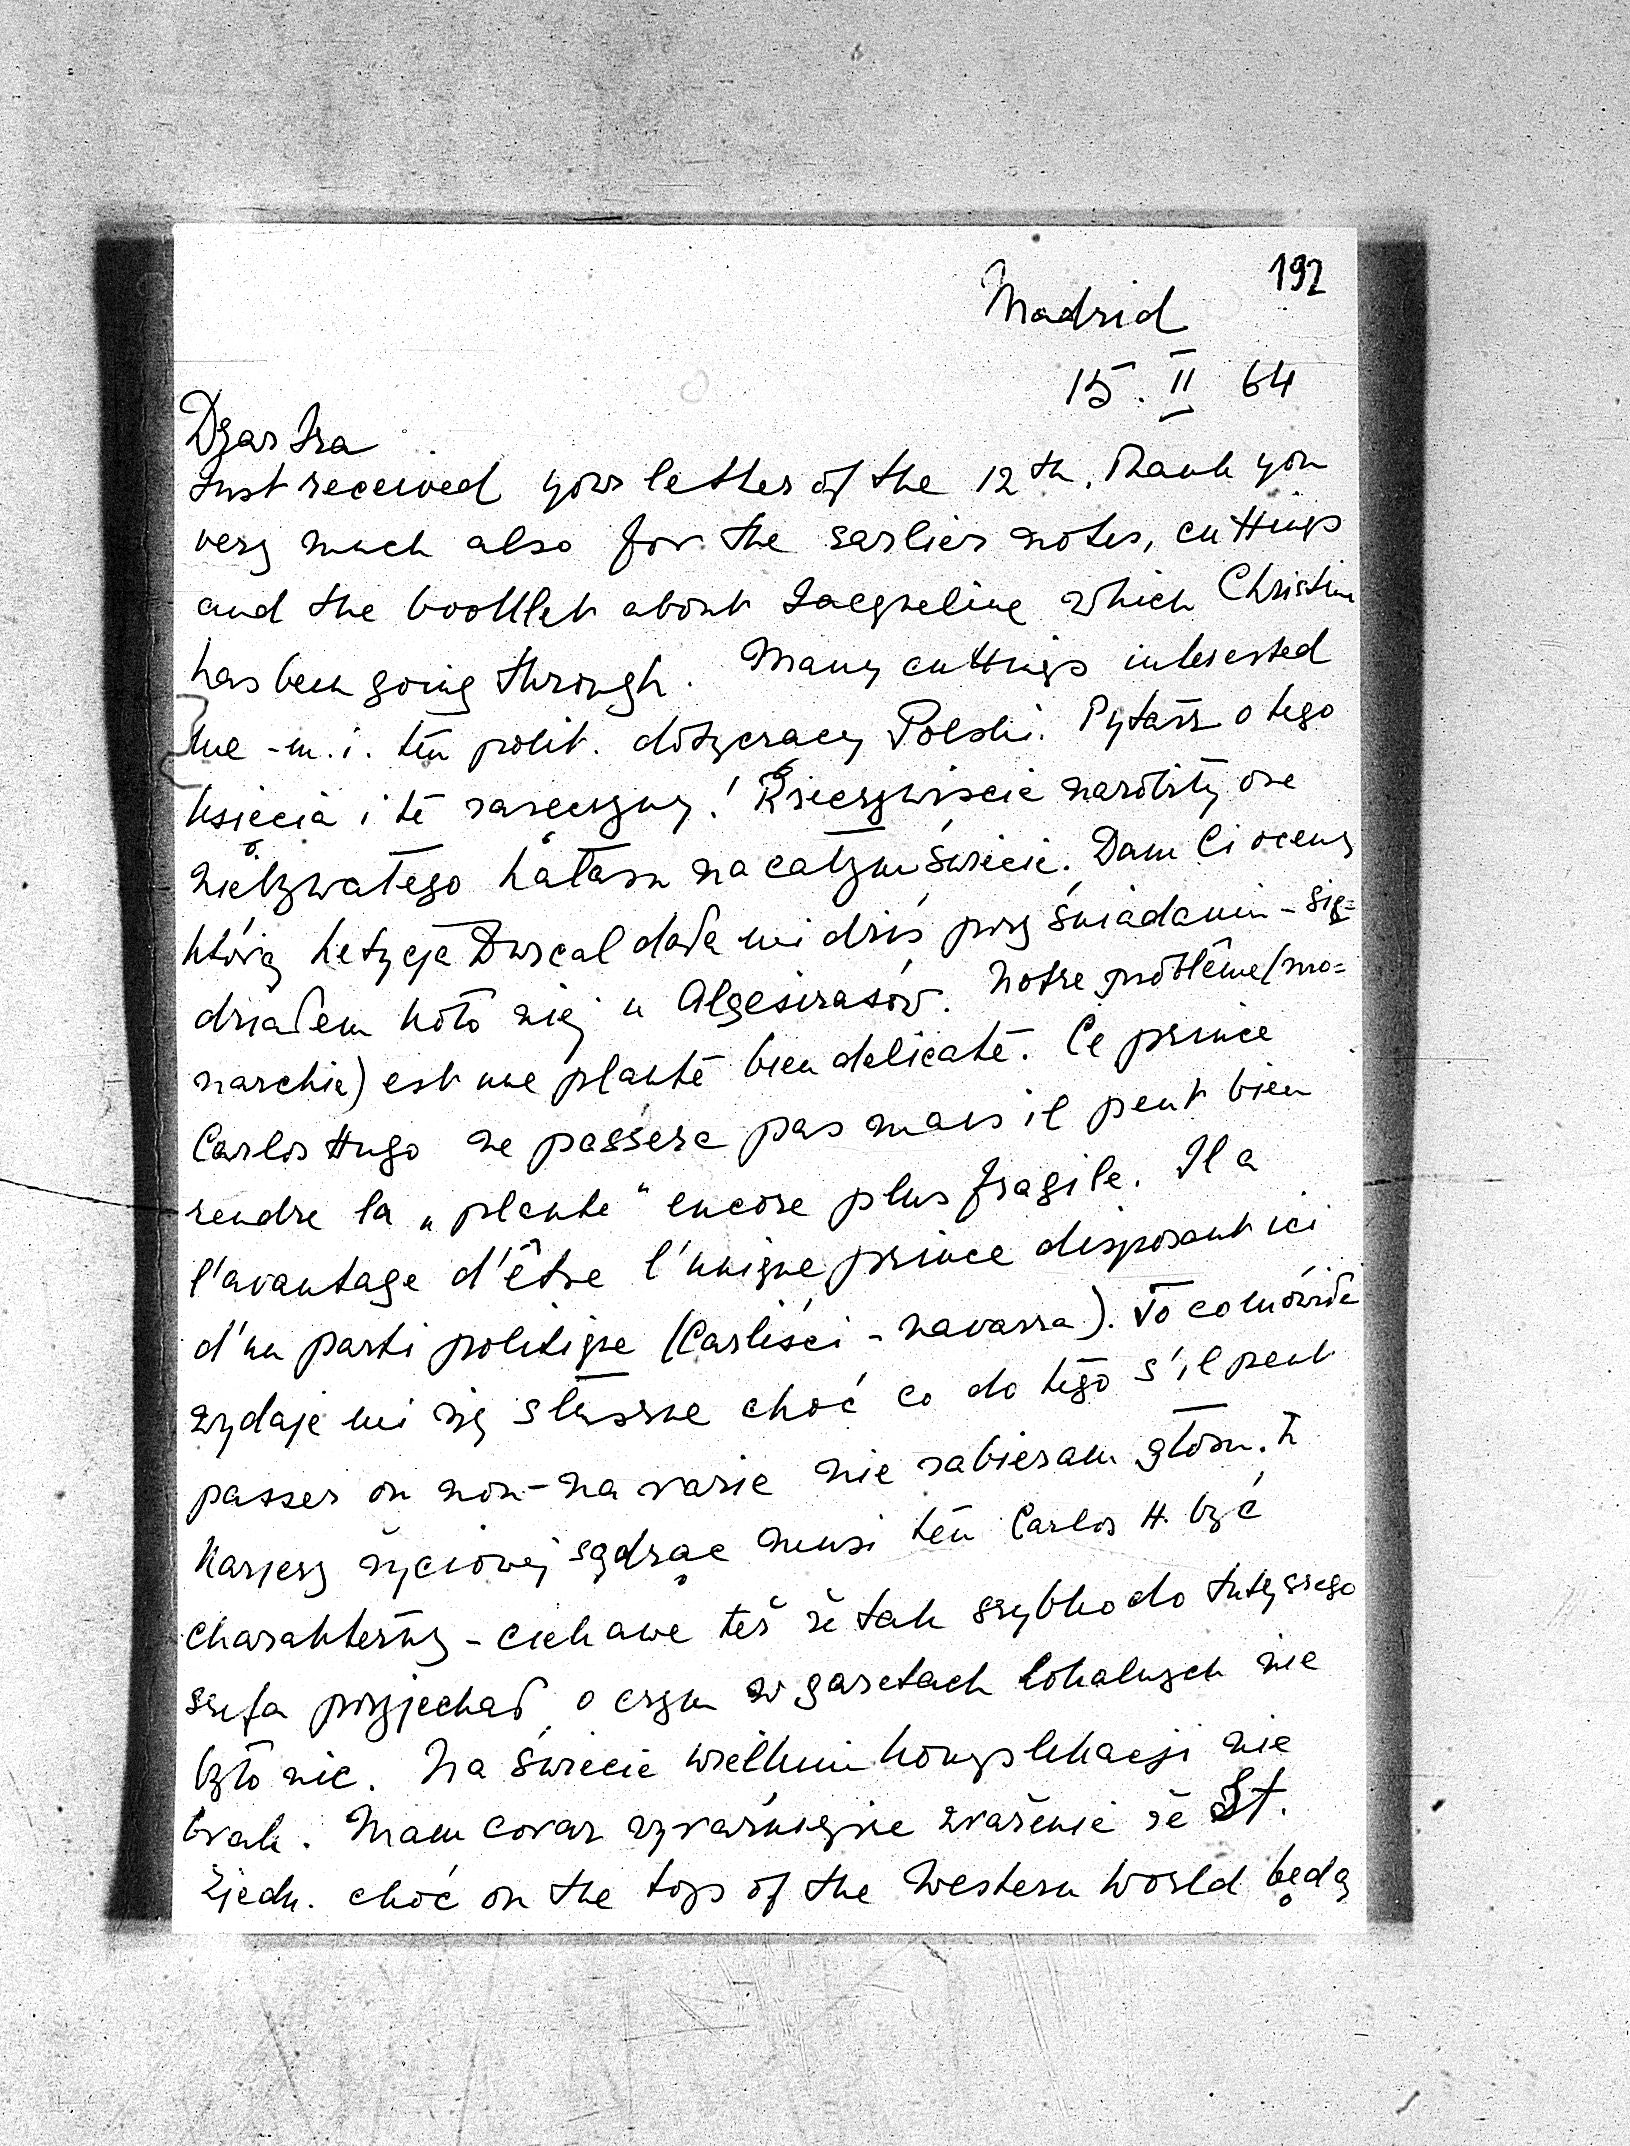 192
Madrid
15. II 64
Dear Ira
Just received your letter of the 12th. Thank you
very much also for the earlier notes, cuttings
and the booklet about Jacqueline which Christine
has been going through. Many cuttings interested
me - m.i. ten polit. dotyczący Polski. Pytasz o tego
księcia i te zaręczyny! Rzeczywiście narobiły one
niebywałego hałasu na całym świecie. Dam Ci ocenę
którą Letycja Durcal dała mi dziś przy śniadaniu - się=
działem koło niej u Algesirasów. Notre problème (mo=
narchie) est une plante bien delicate. Ce prince
Carlos Hugo ne passera pas mais il peut bien
rendre la „plante" encore plus fragile. Il a
l'avantage d'être l'unique prince disposant ici
d'un parti politique (Carliści - Navarra). To co mówiła
wydaje mi się słuszne choć co do tego s'il peut
passer ou non - na razie nie zabieram głosu. Z
karjery życiowej sądząc musi ten Carlos H. być
charakterny - ciekawe też że tak szybko do tutejszego
szefa przyjechał, o czym w gazetach lokalnych nie
było nic. Na świecie wielkim komplikacji nie
brak. Mam coraz wyraźniejsze wrażenie że St.
Zjedn. choć on the top of the Western World będą